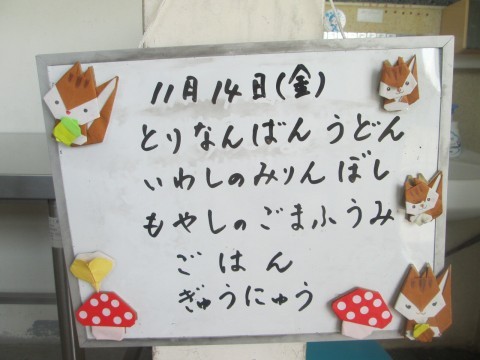 11月14日(金)
とりなんばんうどん
いわしのみりんぼし
もやしのごまふうみ
ごはん
ぎゅうにゅう